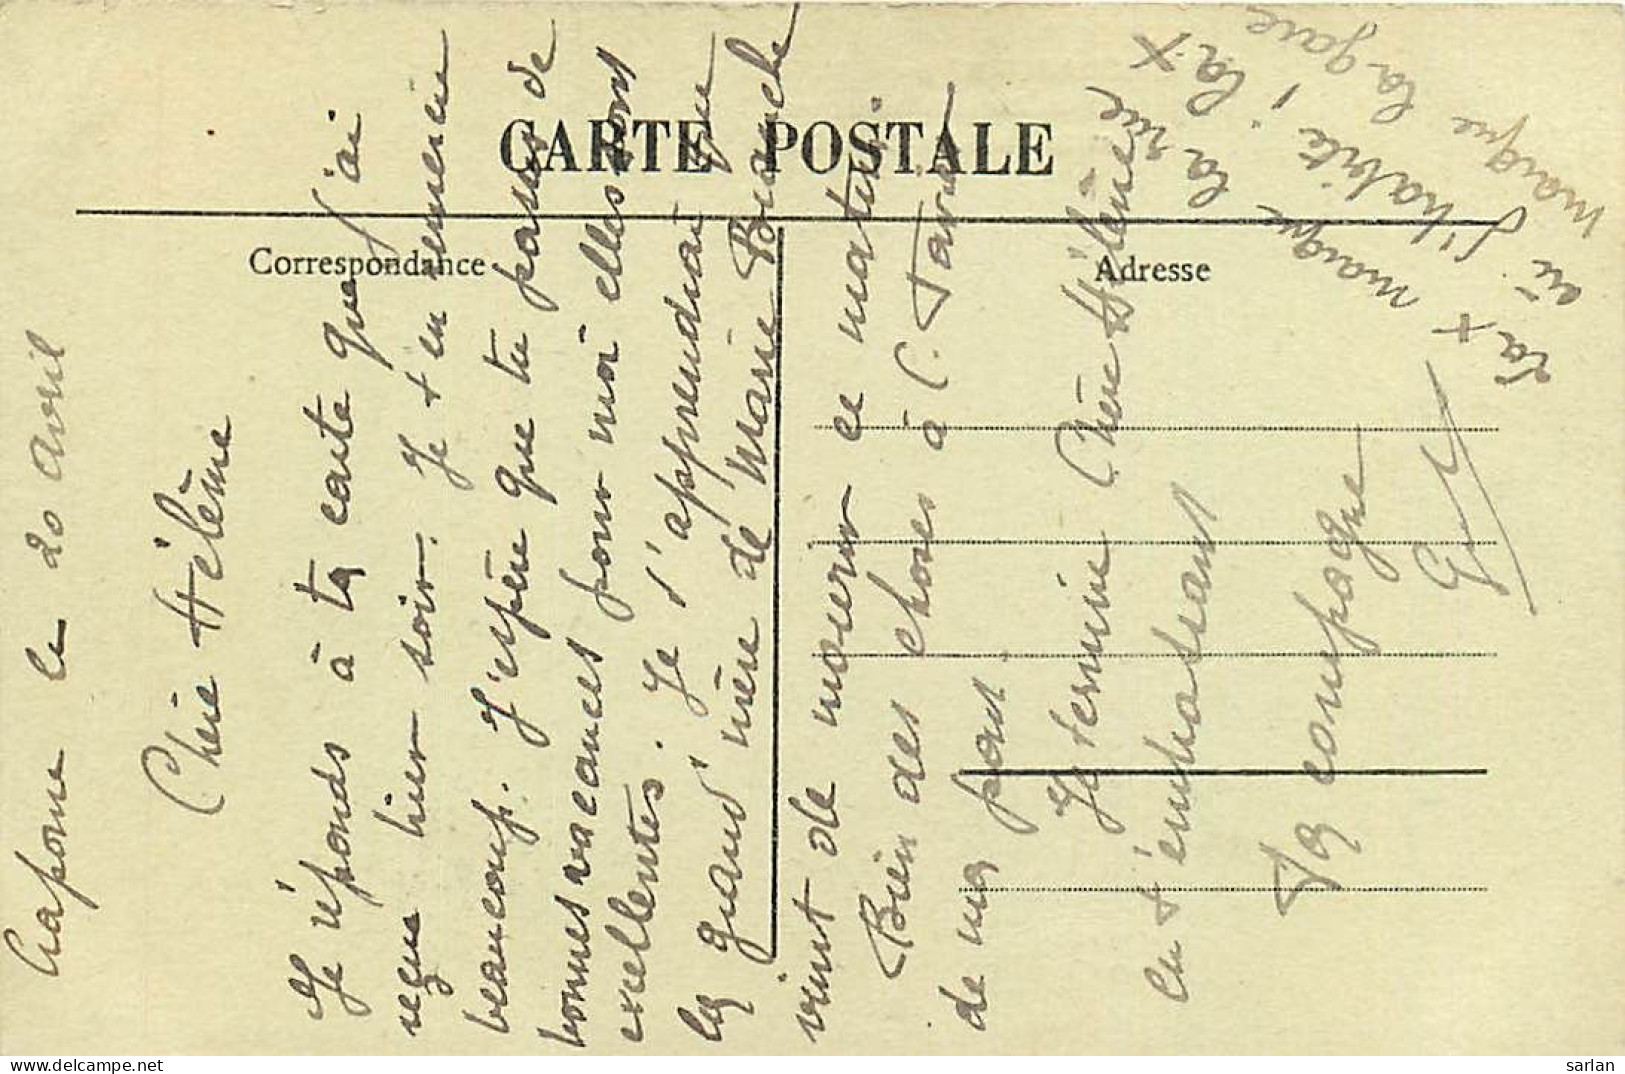 CARTE POSTALE
Correspondance
Adresse
Craponne le 20 avril
Chère Hélème
Je réponds à ta carte que j'ai
reçue hier soir. Je t'en remercie
beaucoup. J'espère que tu passes de
bonnes vacances pour moi elles sont
excellentes. Je t'apprendrai que
la grand'mère de Marie Blanche
vient de mourir ce matin.
Bien des choses à C. Favier
de ma part
Je termine Chère Hélème,
en t'embrassant
Ta compagne
la x marque la rue
où j'habite ; la x
marque la gare
sarlan